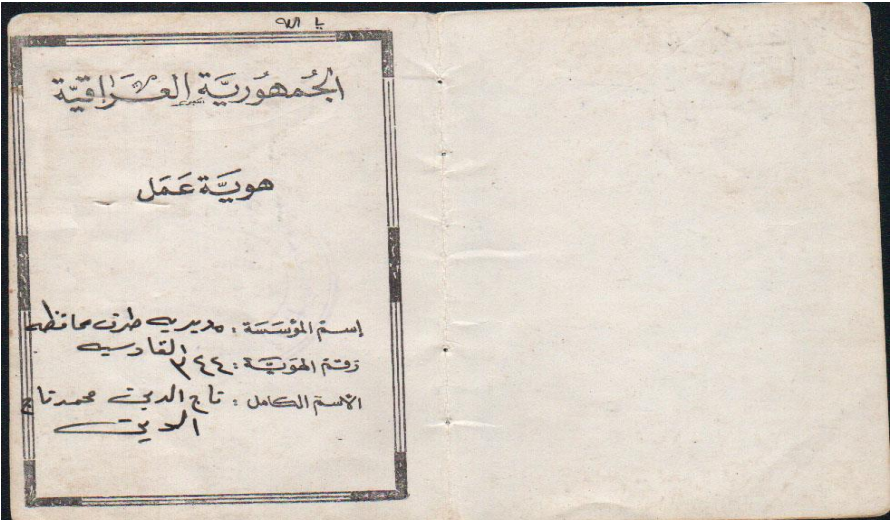 يا الله
الجُمهُوريَّة العِرَاقيَّة
هويَّة عَمَل
إسم المؤسَسَة : مديريه طرق محافظه
القادسيه
رقم الهَويَّة : ٣٤٤
الاسم الكامل : تاج الدين محمد تاج
الدين